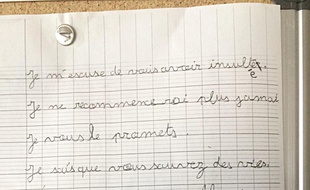 Je m'escuse de vous avoir insulter.
Je ne recommence rai plus jamai
Je vous le promets.
Je sais que vous sauvez des vies.